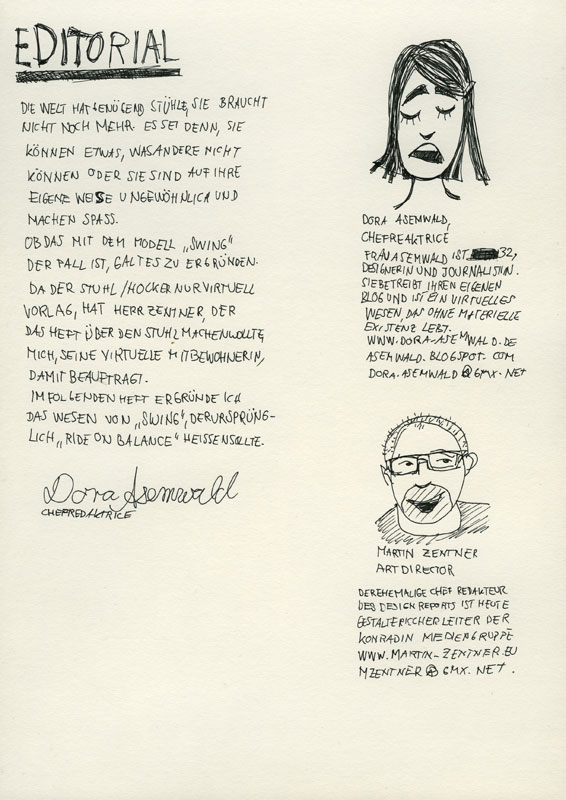 EDITORIAL
DIE WELT HAT GENÜGEND STÜHLE, SIE BRAUCHT
NICHT NOCH MEHR. ES SEI DENN, SIE
KÖNNEN ETWAS, WAS ANDERE NICHT
KÖNNEN ODER SIE SIND AUF IHRE
EIGENE WEISE UNGEWÖHNLICH UND
MACHEN SPASS.
OB DAS MIT DEM MODELL „SWING“
DER FALL IST, GALT ES ZU ERGRÜNDEN.
DA DER STUHL/HOCKER NUR VIRTUELL
VORLAG, HAT HERR ZENTNER, DER
DAS HEFT ÜBER DEN STUHL MACHEN WOLLTE,
MICH, SEINE VIRTUELLE MITBEWOHNERIN,
DAMIT BEAUFTRAGT.
IM FOLGENDEN HEFT ERGRÜNDE ICH
DAS WESEN VON „SWING“, DER URSPRÜNG-
LICH „RIDE ON BALANCE“ HEISSEN SOLLTE.
Dora Asemwald
CHEFREDAKTRICE
DORA ASEMWALD,
CHEFREAKTRICE
FRAU ASEMWALD IST 32,
DESIGNERIN UND JOURNALISTIN.
SIE BETREIBT IHREN EIGENEN
BLOG UND IST EIN VIRTUELLES
WESEN, DAS OHNE MATERIELLE
EXISTENZ LEBT.
WWW.DORA-ASEMWALD.DE
ASEMWALD.BLOGSPOT.COM
DORA.ASEMWALD@GMX.NET
MARTIN ZENTNER
ART DIRECTOR
DER EHEMALIGE CHEF REDAKTEUR
DES DESIGN REPORTS IST HEUTE
GESTALTERISCHER LEITER DER
KONRADIN MEDIENGRUPPE
WWW.MARTIN-ZENTNER.EU
MZENTNER@GMX.NET.